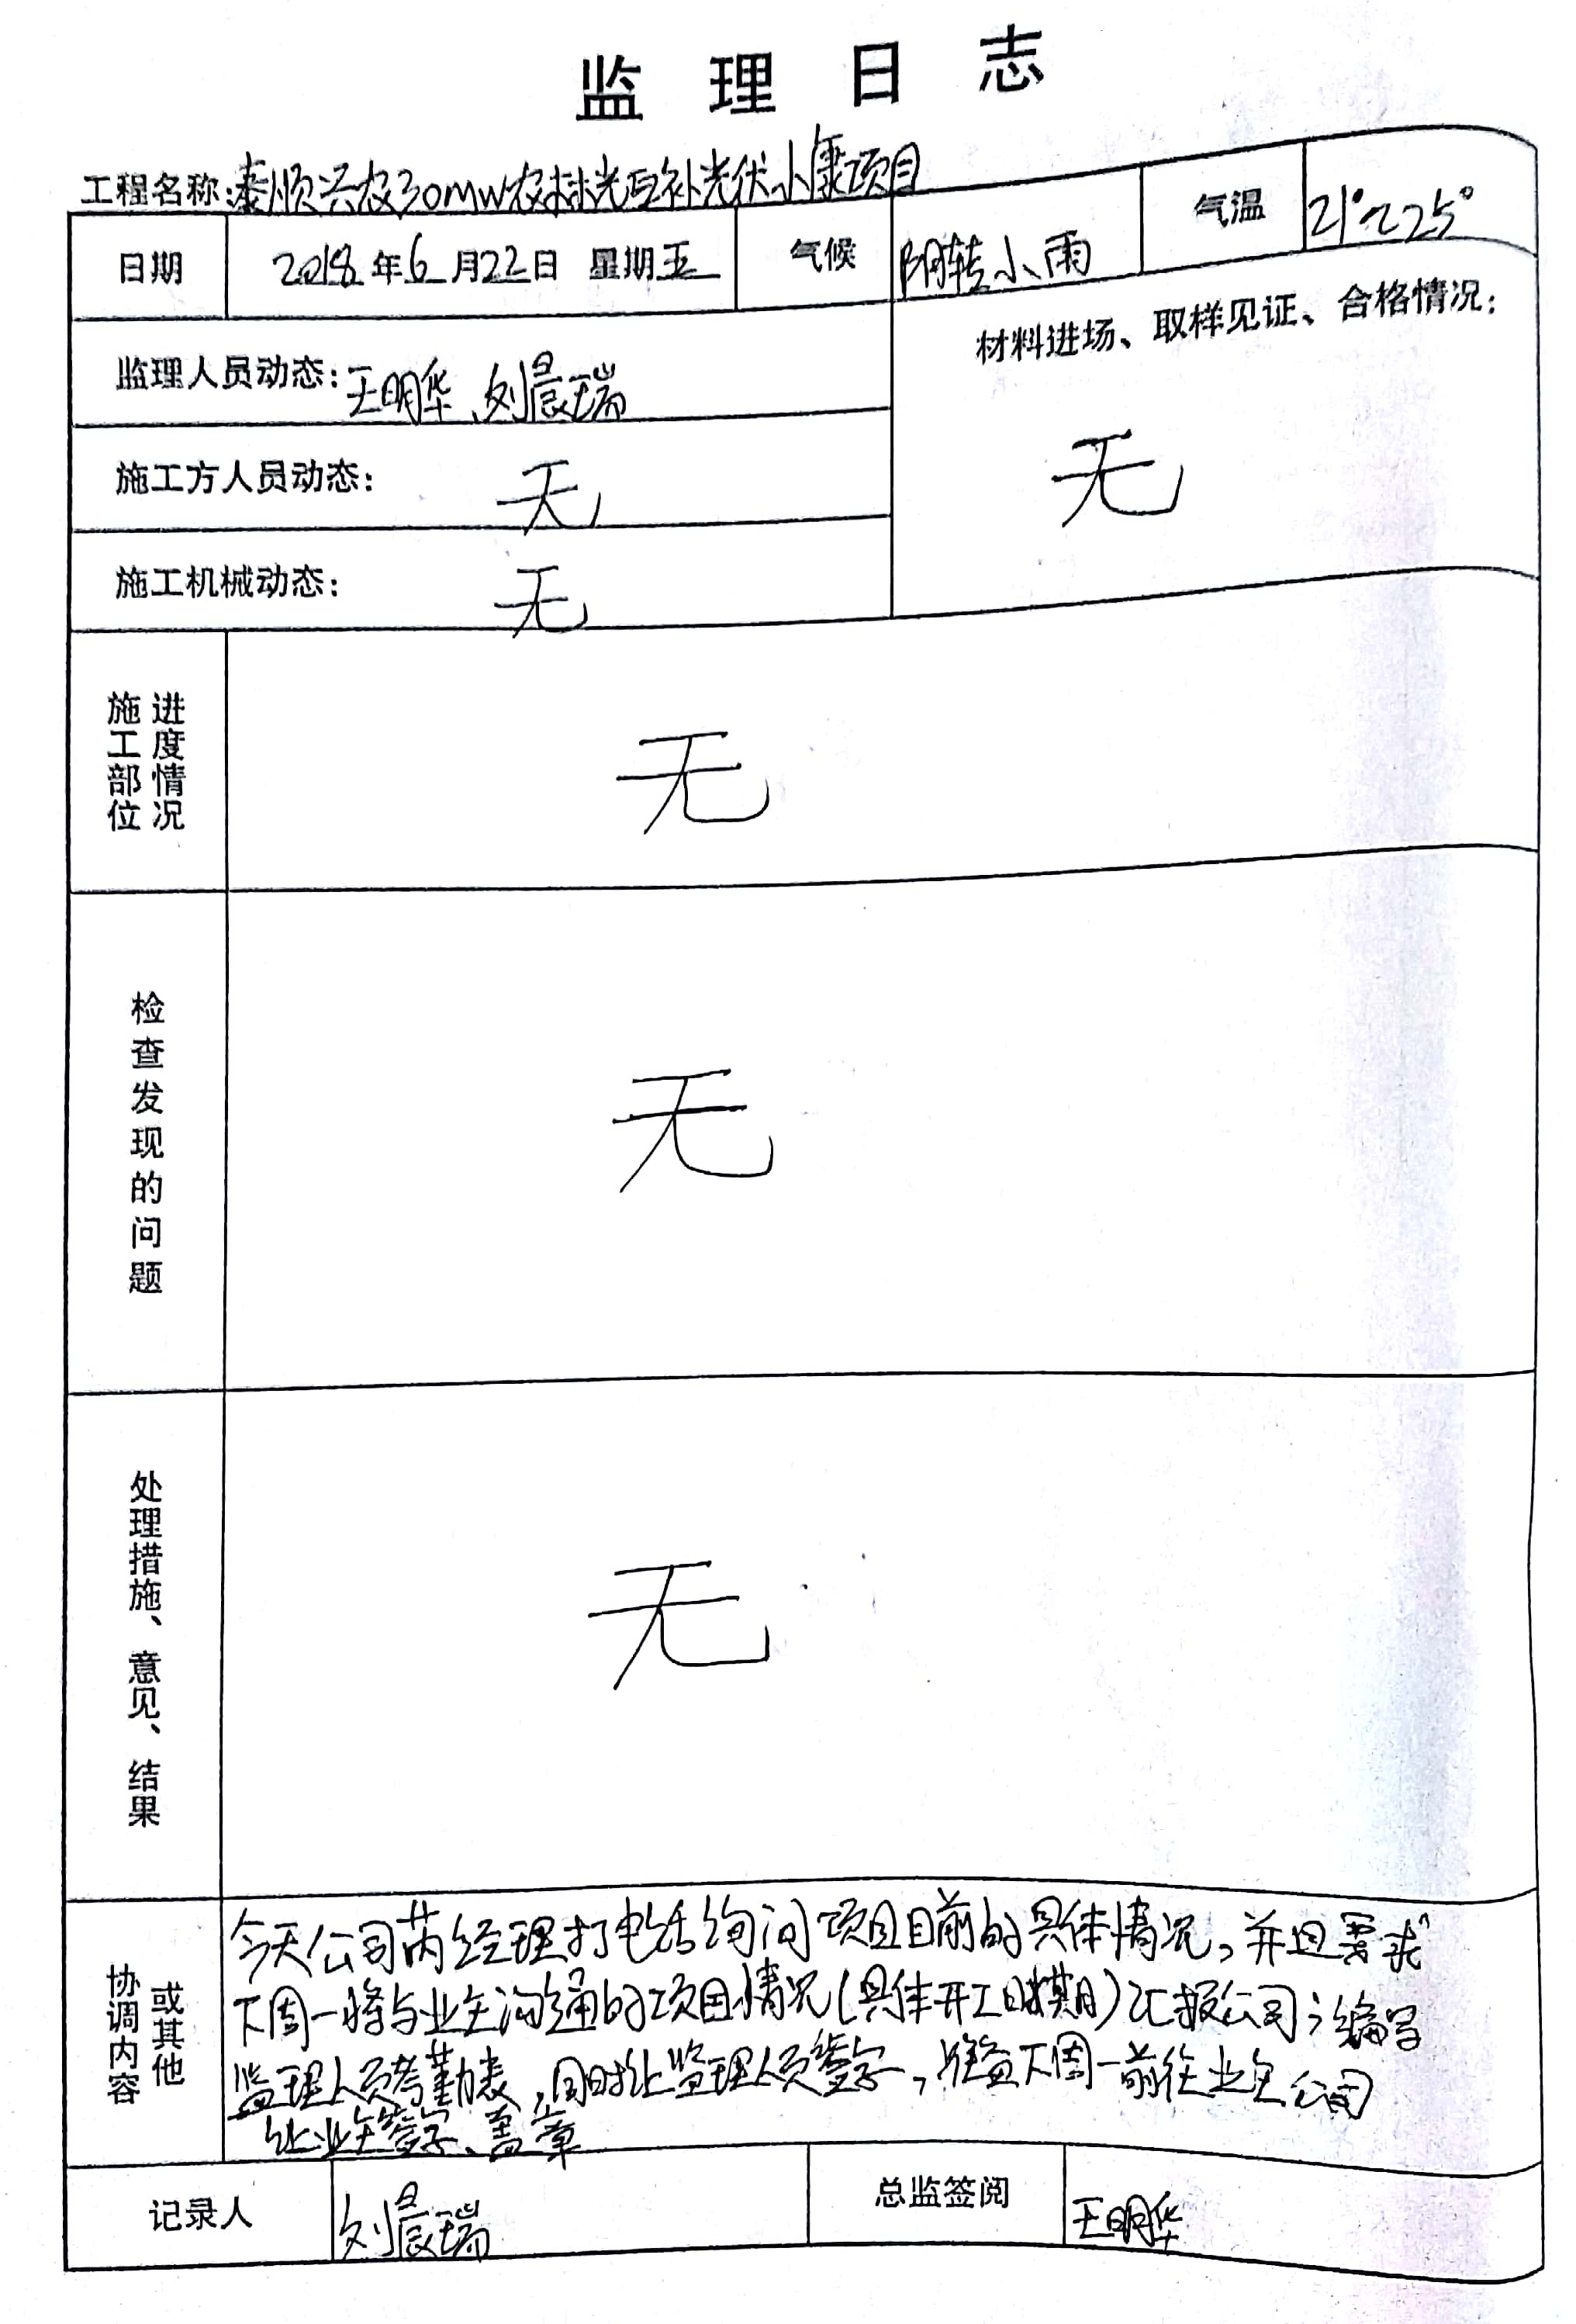 监理日志
工程名称:泰顺兴农30MW农林光互补光伏小康项目
日期 2018年6月22日 星期五 气候 阴转小雨 气温 21°~25°
监理人员动态:王明华、刘晨瑞
材料进场、取样见证、合格情况:
无
施工方人员动态: 无
施工机械动态: 无
施工部位
进度情况
无
检查发现的问题
无
处理措施、意见、结果
无
协调内容
或其他
今天公司芮经理打电话询问项目目前的具体情况,并且要求
下周一将与业主沟通的项目情况(具体开工日期)汇报公司;编写
监理人员考勤表,同时让监理人员签字,准备下周一前往业主公司
让业主签字、盖章
记录人 刘晨瑞 总监签阅 王明华